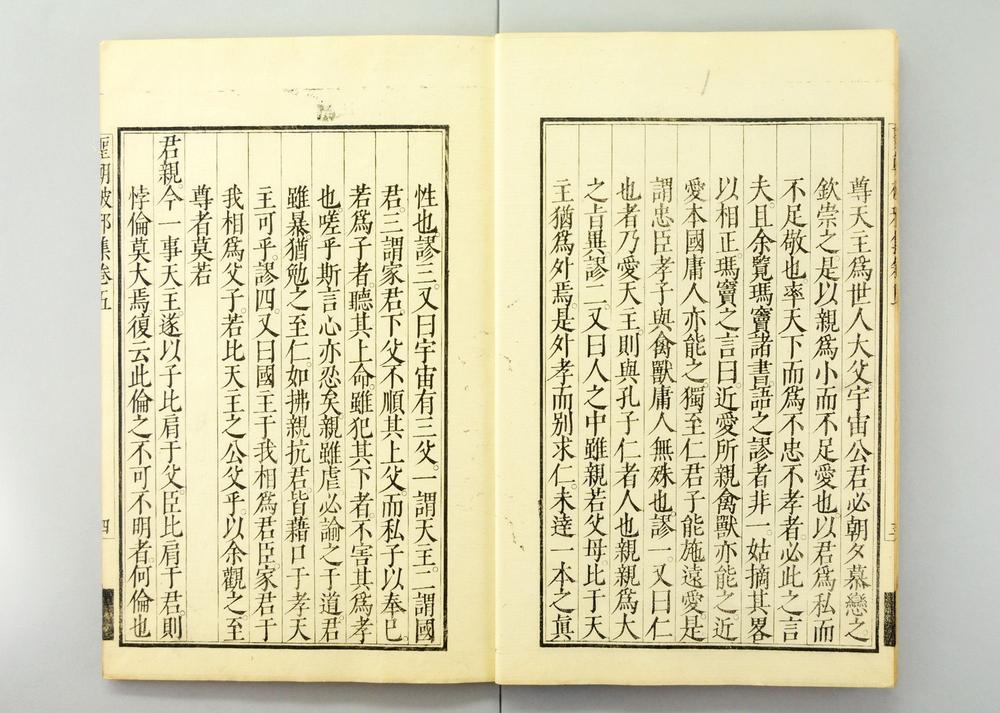 尊天主爲世人大父宇宙公君必朝夕慕戀之
欽崇之是以親爲小而不足愛也以君爲私而
不足敬也率天下而爲不忠不孝者必此之言
夫且余覽瑪竇諸書語之謬者非一姑摘其畧
以相正瑪竇之言曰近愛所親禽獸亦能之近
愛本國庸人亦能之獨至仁君子能施遠愛是
謂忠臣孝子與禽獸庸人無殊也謬一又曰仁
也者乃愛天主則與孔子仁者人也親親爲大
之旨異謬二又曰人之中雖親若父母比于天
主猶爲外焉是外孝而別求仁未達一本之眞
性也謬三又曰宇宙有三父一謂天主一謂國
君三謂家君下父不順其上父而私子以奉已
若爲子者聽其上命雖犯其下者不害其爲孝
也嗟乎斯言心亦忍矣親雖虐必諭之于道君
雖暴猶勉之至仁如拂親抗君皆藉口于孝天
主可乎謬四又曰國主于我相爲君臣家君于
我相爲父子若比天主之公父乎以余觀之至
尊者莫若
君親今一事天主遂以子比肩于父臣比肩于君則
悖倫莫大焉復云此倫之不可不明者何倫也
聖朝破邪集卷五
四